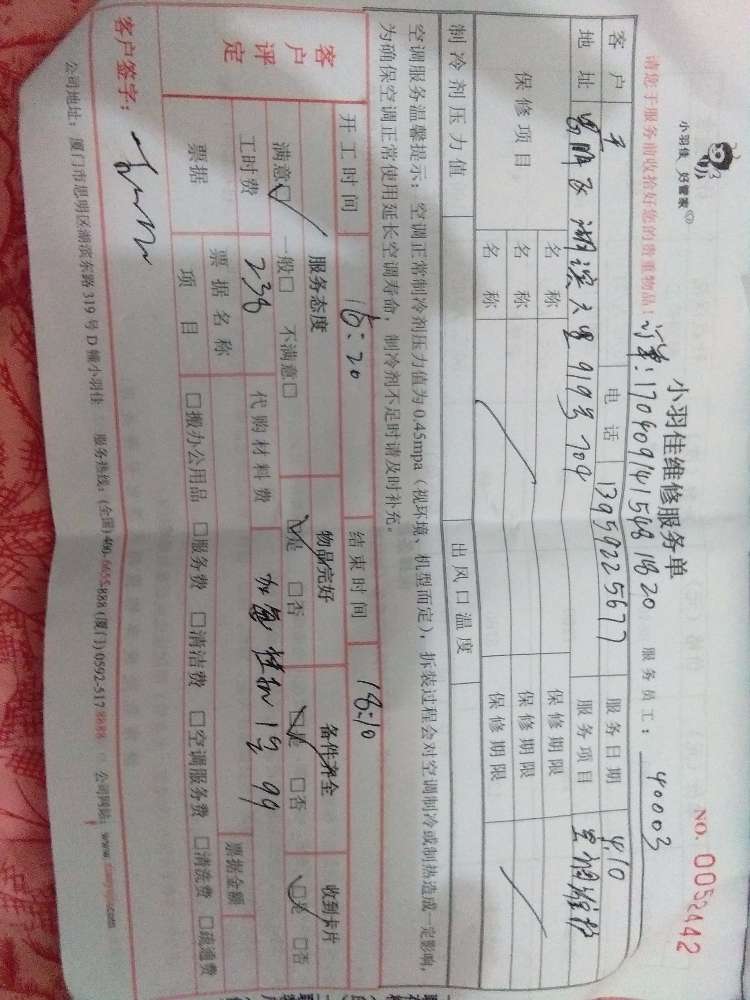 小羽佳 好管家
小羽佳维修服务单
NO. 0052442
请您于服务前收拾好您的贵重物品!
订单:17040914154818 20 服务员工: 40003
客户 电话 13959225677 服务日期 4.10
地址 湖滨 919号704 服务项目 空调维护
保修项目 名称 保修期限
名称 保修期限
名称 保修期限
制冷剂压力值 出风口温度
空调服务温馨提示:空调正常制冷剂压力值为0.45mpa(视环境、机型而定),拆装过程会对空调制冷或制热造成一定影响,
为确保空调正常使用延长空调寿命,制冷剂不足时请及时补充。
开工时间 16:20 结束时间 18:10
客户评定 服务态度 物品完好 备件齐全 收到卡片
满意□ 一般□ 不满意□ □是 □否 □是 □否 □是 □否
工时费 238 代购材料费 99
票据 票据名称 票据金额
项目 □搬办公用品 □服务费 □清洁费 □空调服务费 □清洗费 □疏通费
客户签字:
公司地址:厦门市思明区湖滨东路319号D幢小羽佳 服务热线:(全国)400-6655888(厦门)0592-517 公司网站:www.